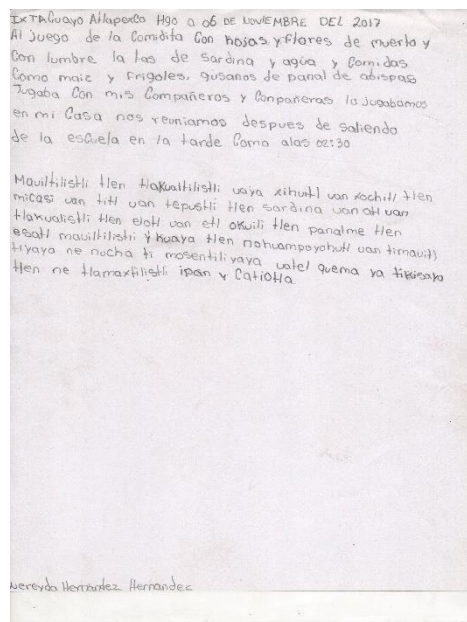 IXTACuayo Atlapexco Hgo a 06 DE NOVIEMBRE DEL 2017
Al juego de la Comidita Con hojas y flores de muerto y
Con lumbre la tas de sardina y agua y Comidas
Como maiz y frigoles, gusanos de panal de abispas
Jugaba Con mis Compañeros y Conpañeras lo jugabamos
en mi Casa nos reuniamos despues de saliendo
de la escuela en la tarde Como alas 02:30
Mauiltilistli tlen tlakualtilistli uaya xihuitl uan xochitl tlen
micasi uan titl uan tepustli tlen sardina uan atl uan
tlakualistli tlen elotl uan etl okuili tlen panalme tlen
esatl mauiltilistli ykuaya tlen nohuampoyohutl uan timauitl
tiyaya ne nocha ti mosentiliyaya uatel quema ya tikisaya
tlen ne tlamaxtilistli ipan y Catiotla
Nereyda Hernández Hernandez